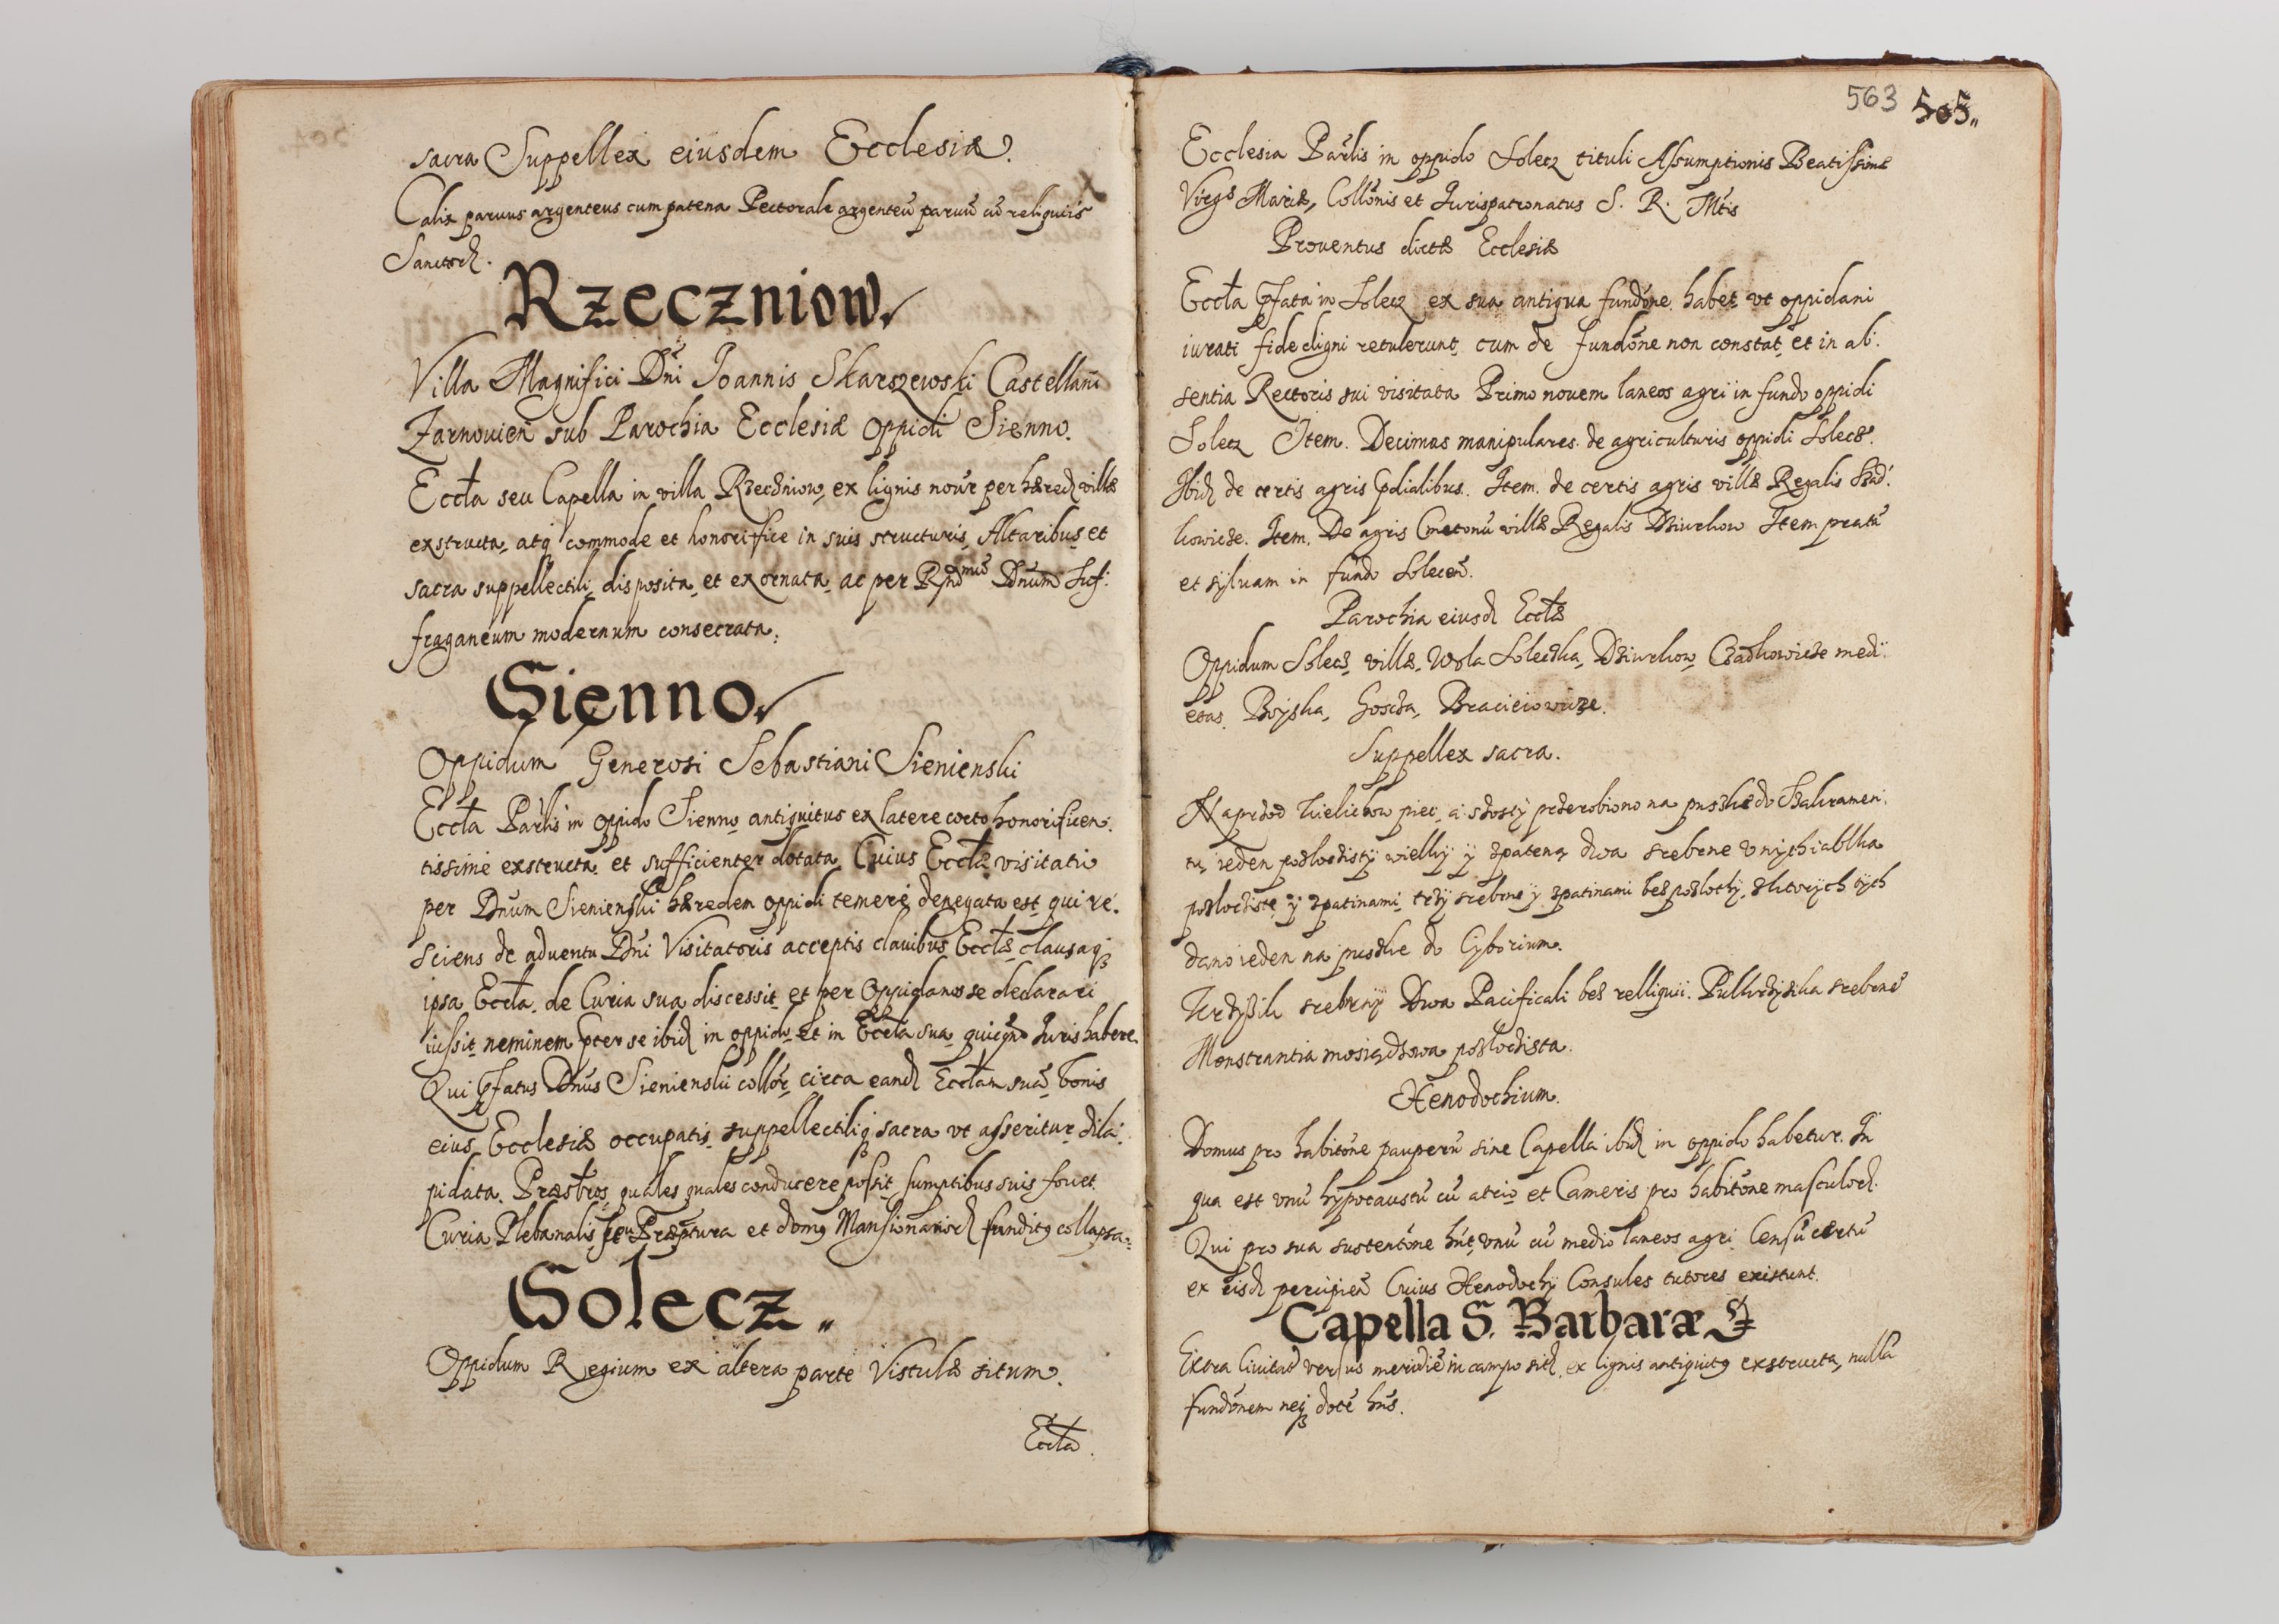 sacra Suppellex eiusdem Ecclesiæ.
Calix paruus argenteus cum patena Pectorale argenteũ paruũ cũ reliquijs
Sanctorũ.
Rzeczniow
Villa Magnifici Dñi Joannis Skarszewski Castellani
Zarnouien̄ sub Parochia Ecclesiæ oppidi Sienno.
Eccła seu Capella in villa Rzeczniow, ex lignis nouẽ per hæred villæ
exstructa, atq commode et honorifice in suis structuris, Altaribus et
sacra suppellectili, disposita, et exornata, ac per Rñdmũ Dnum Suf:
fraganeum modernum consecrata.
Sienno
Oppidum Generosi Sebastiani Sienienski
Eccła Parłis in oppido Sienno antiquitus ex latere cocto honorificen:
tissimè exstructa, et sufficienter dotata, Cuius Eccłæ visitatio
per Dnum Sienienski hæredem oppidi temerè denegata est, qui re:
sciens de aduentu Dñi Visitatoris acceptis clauibus Eccłæ, clausaq
ipsa Eccła, de Curia sua discessit, et per oppidanos se declarari
iussit, neminem p̃ter se ibid in oppido, et in Eccła sua, quicq̃ Juris habere.
Qui p̃fatus Dñus Sienienski collõr, circa eand Eccłam suã, bonis
eius Ecclesiæ occupatis, suppellectiliq sacra vt asseritur, dila:
pidata. Præsb̃ros, quales quales conducere possit, sumptibus suis fouet.
Curia Plebanalis seu Præp̃tura et domq Mansionariorũ funditq collapsa.
Solecz
Oppidum Regium ex altera parte Vistulæ situm.
Eccła.
563 505
Ecclesia Parłis in oppido Solecz tituli Assumptionis Beatissimæ
Virgs Mariæ, Collõnis et Jurispatronatus S. R. Mtis
Prouentus dictæ Ecclesiæ
Eccła p̃fata in Solecz ex sua antiqua fundõne, habet, vt oppidani
iurati fide digni retulerunt, cum de fundõne non constat, et in ab:
sentia Rectoris sui visitata Primo nouem laneos agri in fundo oppidi
Solecz Item. Decimas manipulares de agriculturis oppidi Solecz.
Ibid de certis agris p̃dialibus. Item. de certis agris villæ Regalis
Item. De agris Cmetonũ villæ Regalis Dziurkow Item pratũ
et syluam in fundo Solecen̄.
Parochia eiusd Eccłæ
Oppidum Solecz, villæ, Wola Solecska, Dziurkow, Czadkowicze medi:
etas, Boyska, Braciejowicze.
Suppellex sacra.
Naprzod kielichow piec, a szosty przerobiono na puszkę do Szakramen:
tu, ieden pozlocisty wielky y zpateną, dwa srebrne v nych iablka
pozlociste y zpatinami, trzy srebrne y zpatinami bez pozloty, zktorych tych
dano ieden na puszke do Cyborium.
srebrny Dwa Pacificali bez relliquii. srebrnẽ
Monstrantia mosiądzowa pozlocista.
Xenodochium.
Domus pro habitõne pauperũ sine Capella ibid in oppido habetur. In
qua est vnũ hypocaustũ cũ atrio et Cameris pro habitõne masculorũ.
Qui pro sua sustentõne hñt, vnũ cũ medio laneos agri. Censũ certũ
ex eisd percipien̄ Cuius Xenodochij Consules tutores existunt.
Capella S. Barbaræ
Extra Ciuitatẽ versus meridiẽ in campo sita, ex lignis antiquitq exstructa, nullã
fundõnem neq dotẽ hñs.